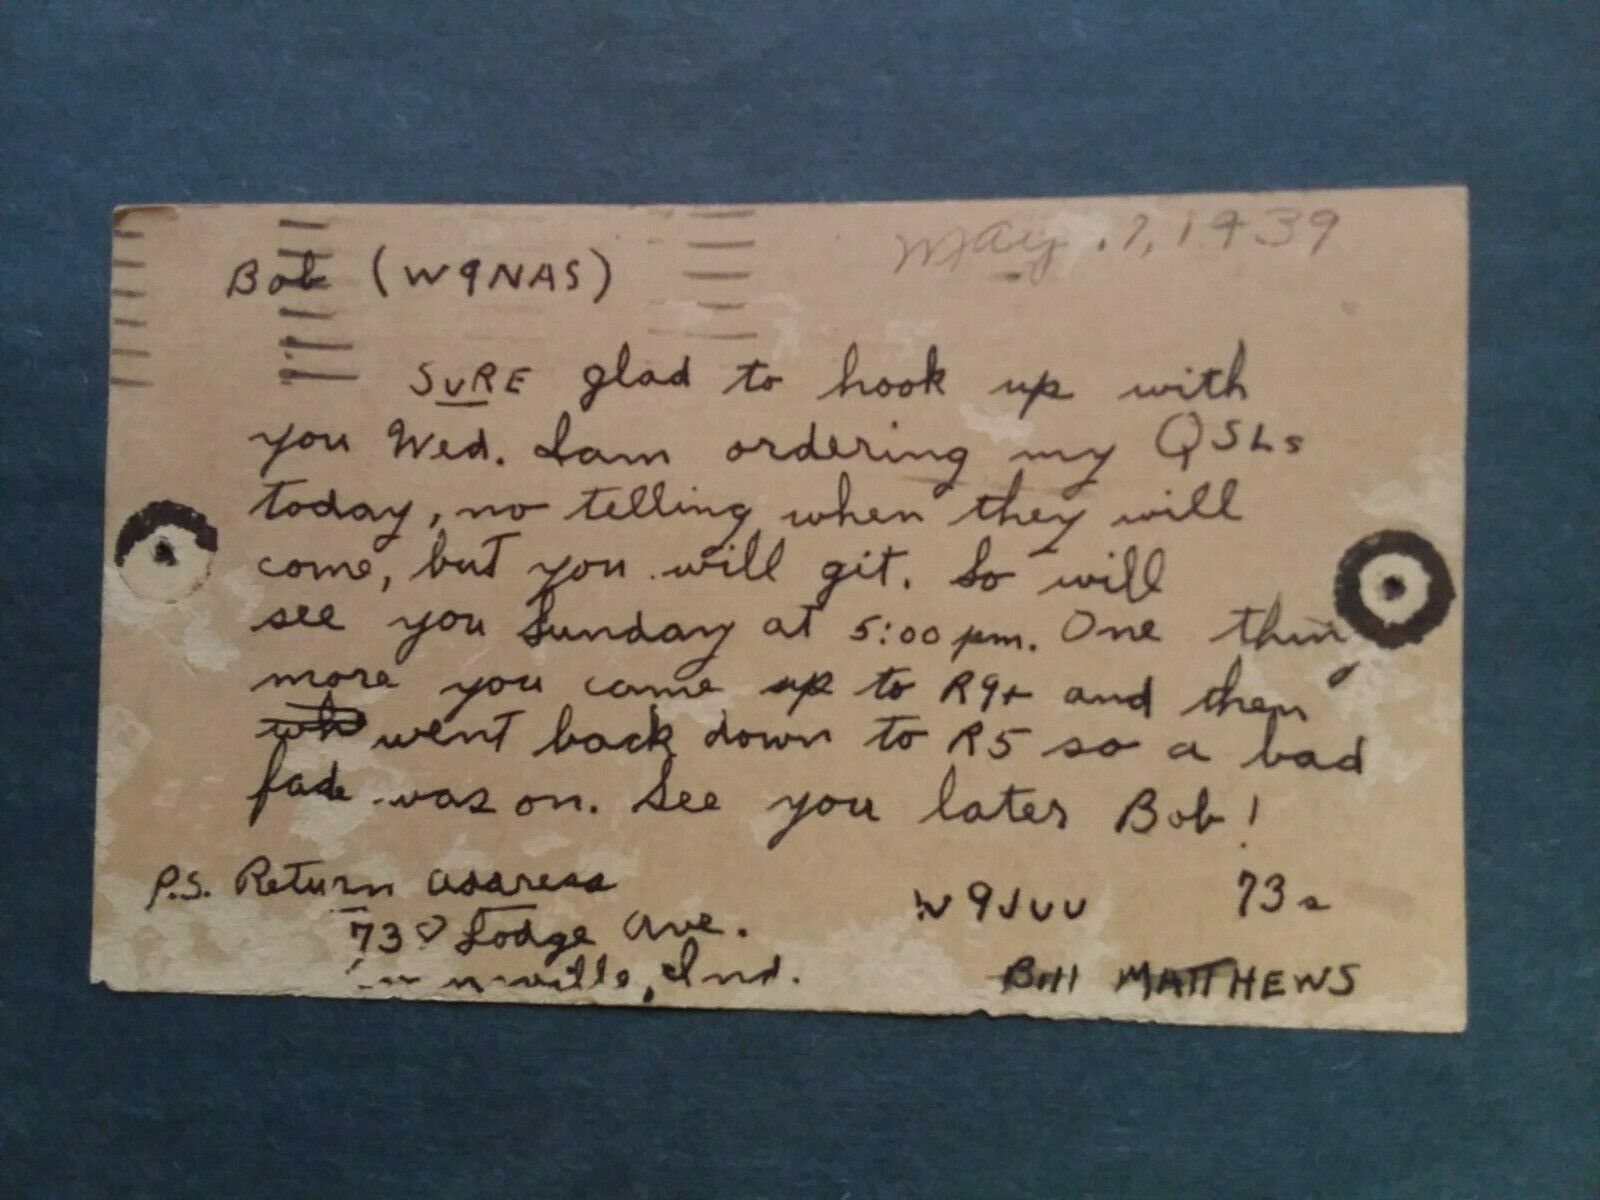 May. 7, 1939
Bob (W9NAS)
SURE glad to hook up with
you Wed. I am ordering my QSLs
today, no telling when they will
come, but you will git. So will
see you Sunday at 5:00 pm. One thing
more you came up to R9+ and then
went back down to R5 so a bad
fade was on. See you later Bob!
P.S. Return address
W9JUU 73s
Lodge Ave.
Ind.
Bill MATTHEWS